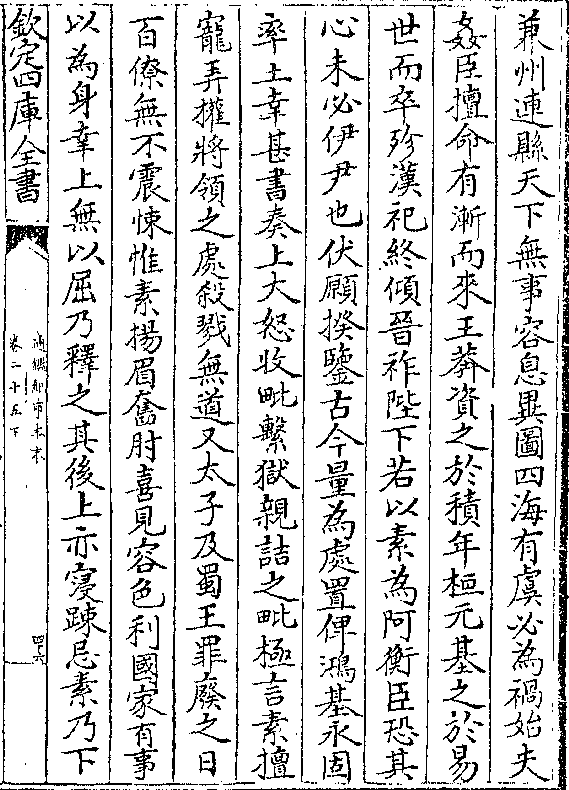 兼州連縣天下無事容息異圖四海有虞必為禍始夫
姦臣擅命有漸而來王莽資之於積年桓元基之於易
世而卒殄漢祀終傾晉祚陛下若以素為阿衡臣恐其
心未必伊尹也伏願揆鑒古今量為處置俾鴻基永固
率土幸甚書奏上大怒收毗繫獄親詰之毗極言素擅
寵弄權將領之處殺戮無道又太子及蜀王罪廢之日
百僚無不震悚惟素揚眉奮肘喜見容色利國家有事
以為身幸上無以屈乃釋之其後上亦寖踈忌素乃下
欽定四庫全書
通鑑紀事本末
卷二十五下
四六